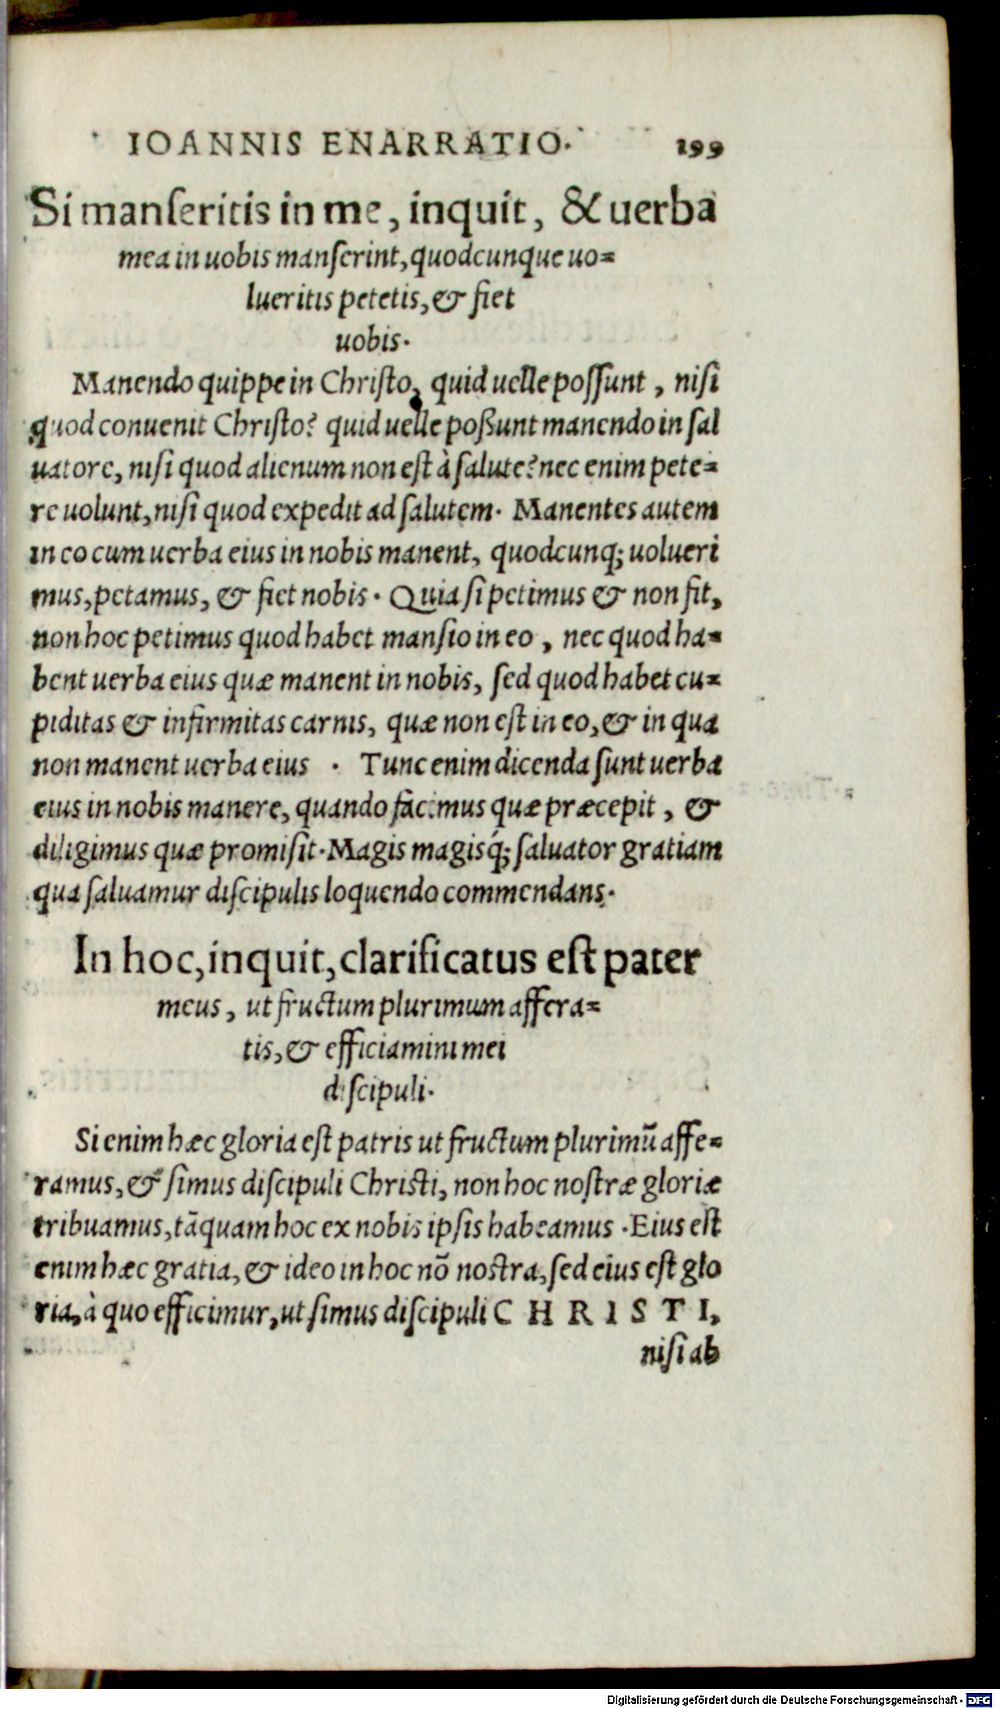 IOANNIS ENARRATIO. 199
Si manſeritis in me, inquit, & uerba
mea in uobis manſerint, quodcunque uo=
lueritis petetis, & fiet
uobis.
Manendo quippe in Chriſto, quid uelle poſſunt, niſi
quod conuenit Chriſto? quid uelle poßunt manendo in ſal
uatore, niſi quod alienum non eſt à ſalute? nec enim pete=
re uolunt, niſi quod expedit ad ſalutem. Manentes autem
in eo cum uerba eius in nobis manent, quodcunq; uolueri
mus, petamus, & fiet nobis. Quia ſi petimus & non fit,
non hoc petimus quod habet manſio in eo, nec quod ha=
bent uerba eius quæ manent in nobis, ſed quod habet cu=
piditas & infirmitas carnis, quæ non eſt in eo, & in qua
non manent uerba eius. Tunc enim dicenda ſunt uerba
eius in nobis manere, quando facimus quæ præcepit, &
diligimus quæ promiſit. Magis magisq́; ſaluator gratiam
qua ſaluamur diſcipulis loquendo commendans.
In hoc, inquit, clarificatus eſt pater
meus, ut fructum plurimum affera=
tis, & efficiamini mei
diſcipuli.
Si enim hæc gloria eſt patris ut fructum plurimū affe=
ramus, & ſimus diſcipuli Chriſti, non hoc noſtræ gloriæ
tribuamus, tāquam hoc ex nobis ipſis habeamus. Eius eſt
enim hæc gratia, & ideo in hoc nō noſtra, ſed eius eſt glo
ria, à quo efficimur, ut ſimus diſcipuli CHRISTI,
niſi ab
Digitalisierung gefördert durch die Deutsche Forschungsgemeinschaft - DFG